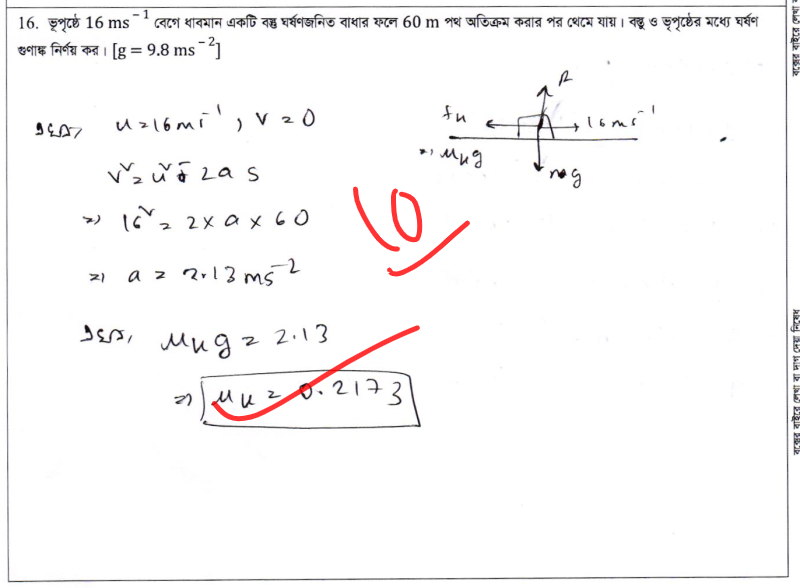 16. ভূপৃষ্ঠে 16 ms⁻¹ বেগে ধাবমান একটি বস্তু ঘর্ষণজনিত বাধার ফলে 60 m পথ অতিক্রম করার পর থেমে যায়। বস্তু ও ভূপৃষ্ঠের মধ্যে ঘর্ষণ
গুণাঙ্ক নির্ণয় কর। [g = 9.8 ms⁻²]
u = 16 ms⁻¹, v = 0
v² = u² - 2as
⇒ 16² = 2 × a × 60
⇒ a = 2.13 ms⁻²
μₖg = 2.13
⇒ μₖ = 0.2173
R
fₖ
16 ms⁻¹
⇒ μₖg
mg
10